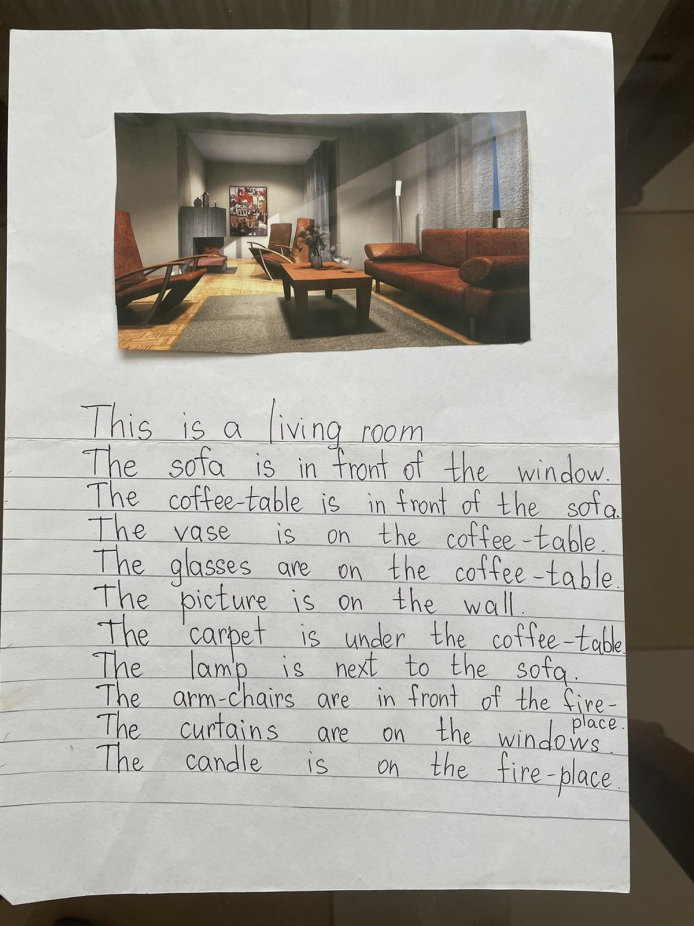 This is a living room
The sofa is in front of the window.
The coffee-table is in front of the sofa.
The vase is on the coffee-table.
The glasses are on the coffee-table.
The picture is on the wall.
The carpet is under the coffee-table.
The lamp is next to the sofa.
The arm-chairs are in front of the fire-
place.
The curtains are on the windows.
The candle is on the fire-place.